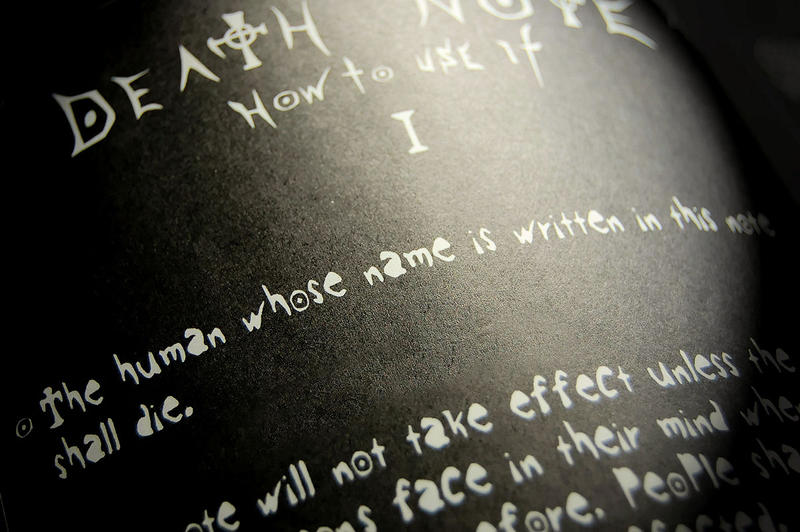 DEATH NOTE
How to use it
I
The human whose name is written in this note
shall die.
will not take effect unless the
face in their mind
People